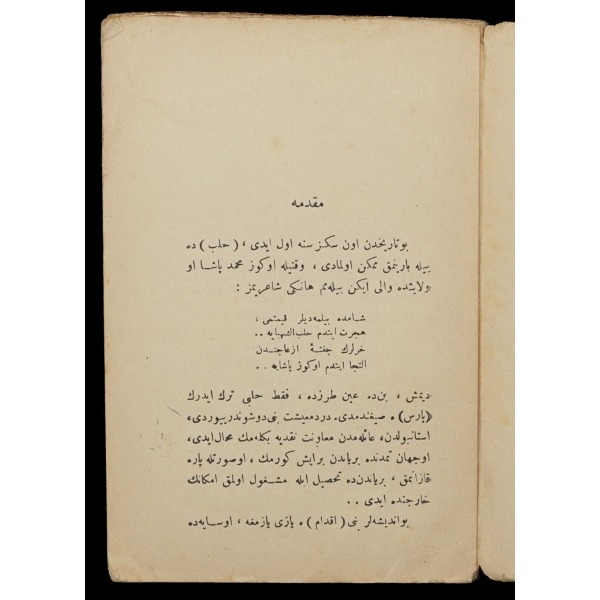 مقدمه
بو تاریخدن اون سکز سنه اول ایدی ، ( حلب ) ده
بیله بارینمق ممکن اولمادی ، وقتیله اوکوز محمد پاشا او
ولایتده والی ایکن بیله‌مم هانکی شاعریمز :
شامده بیلمه‌دیلر قیمتمی ،
هجرت ایتدم حلب الشهبایه . .
خرلرك چفتهٔ ازعاجندن
التجا ایتدم اوکوز پاشایه . .
دیمش ، بن ده عین طرزده ، فقط حلبی ترك ایدرك
(پارس) ه صیغندمدی. درد معیشت بنی دوشوندیرییوردی،
استانبولدن، عائله‌مدن معاونت نقدیه بکله‌مك محال ایدی،
او جهان تمدنده بر یاندن بر ایش کورمك ، او صورتله پاره
قازانمق ، بر یاندن ده تحصیل ایله مشغول اولمق امکانك
خارجنده ایدی . .
بو اندیشه‌لر بنی ( اقدام ) ه یازی یازمغه ، او سایه‌ده